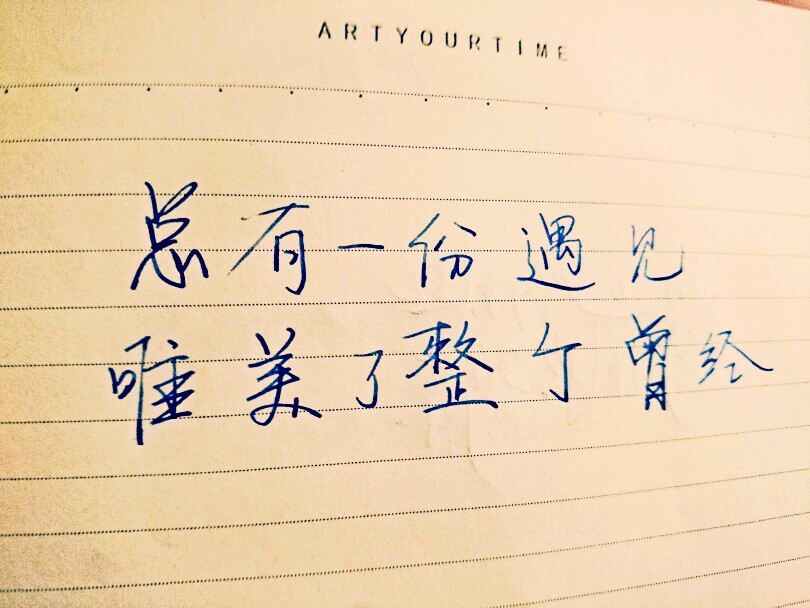 ARTYOURTIME
总有一份遇见
唯美了整个曾经